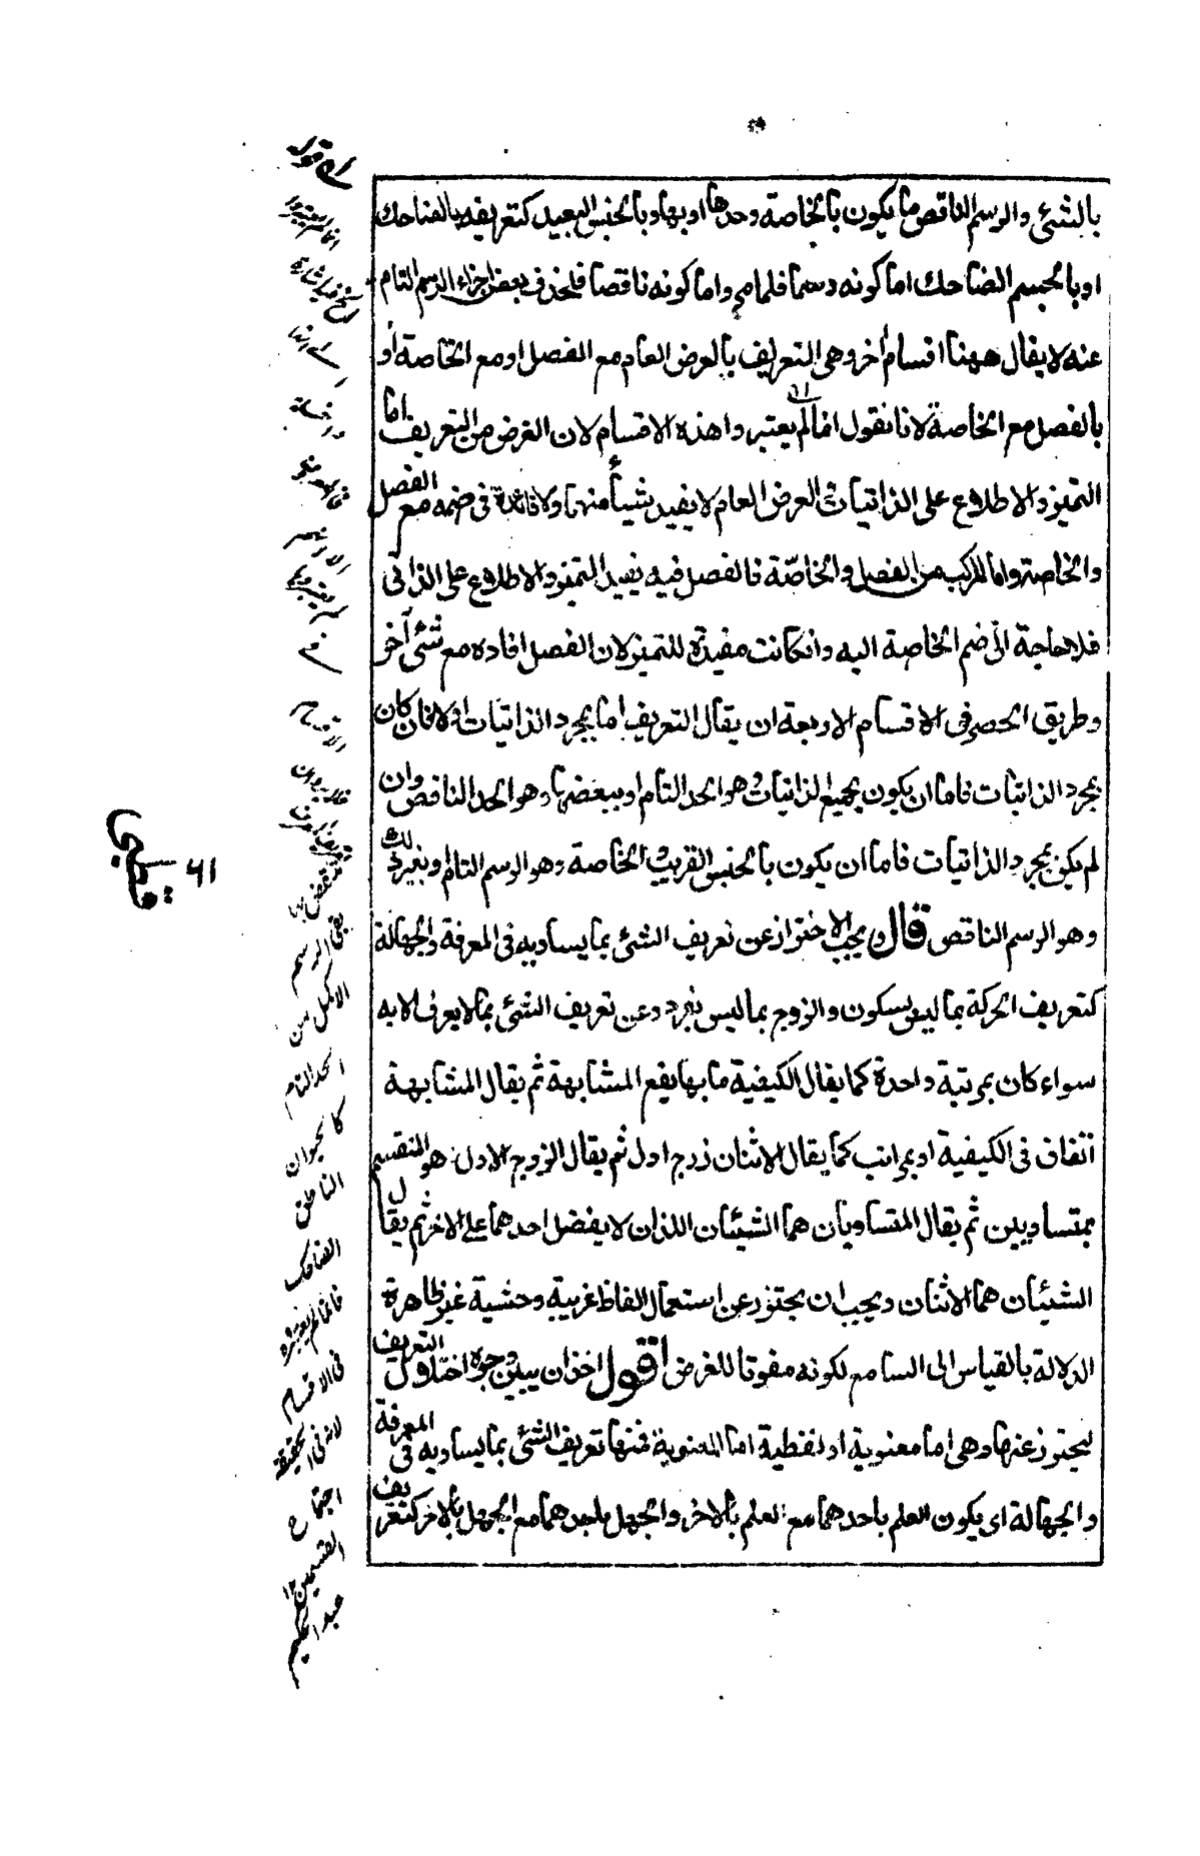 بالشئ والرسم الناقص ما يكون بالخاصة وحدها او بها وبالجنس البعيد كتعريفه بالضاحك
او بالجسم الضاحك اما كونه رسما فلما مر واما كونه ناقصا فلحذف بعض اجزاء الرسم التام
عنه لا يقال ههنا اقسام أخر وهى التعريف بالعرض العام مع الفصل او مع الخاصة أو
بالفصل مع الخاصة لانا نقول انما لم يعتبروا هذه الاقسام لان الغرض من التعريف اما
التميز والاطلاع على الذاتيات والعرض العام لا يفيد شيئاً منهما ولا فائدة فى ضمه مع الفصل
والخاصة واما المركب من الفصل والخاصّة فالفصل فيه يفيد التميز والاطلاع على الذاتى
فلا حاجة الى ضم الخاصة اليه وانكانت مفيدة للتميز لان الفصل افاده مع شئ آخر
وطريق الحصر فى الاقسام الاربعة ان يقال التعريف اما بمجرد الذاتيات اولا فان كان
بمجرد الذاتيات فاما ان يكون بجميع الذاتيات وهو الحد التام او ببعضها وهو الحد الناقص وان
لم يكن بمجرد الذاتيات فاما ان يكون بالجنس القريب والخاصة وهو الرسم التام او بغير ذلك
وهو الرسم الناقص قال ويجب الاحتراز عن تعريف الشئ بما يساويه فى المعرفة والجهالة
كتعريف الحركة بما ليس بسكون والزوج بما ليس بفرد وعن تعريف الشئ بما لا يعرف الا به
سواء كان بمرتبة واحدة كما يقال الكيفية ما بها يقع المشابهة ثم يقال المشابهة
اتفاق فى الكيفية او بمراتب كما يقال الاثنان زوج اول ثم يقال الزوج الاول هو المنقسم
بمتساويين ثم يقال المتساويان هما الشيئان اللذان لا يفضل احدهما على الاخر ثم يقال
الشيئان هما الاثنان ويجب ان يحترز عن استعمال الفاظ غريبة وحشية غير ظاهرة
الدلالة بالقياس الى السامع لكونه مفوتا للغرض اقول اخذ ان يبين وجوه اختلال التعريف
ليحترز عنها وهى اما معنوية او لفظية اما المعنوية فمنها تعريف الشئ بما يساويه فى المعرفة
والجهالة اى يكون العلم باحدهما مع العلم بالاخر والجهل باحدهما مع الجهل بالاخر كتعريف
قطبى
٦١
قوله
بقى الرسم
الاكمل من
الحد التام
كالحيوان
الناطق
الضاحك
فانما لم يعتبره
فى الاقسام
لانه فى الحقيقة
اجتماع
القسمين ١٢
عبد الحكيم